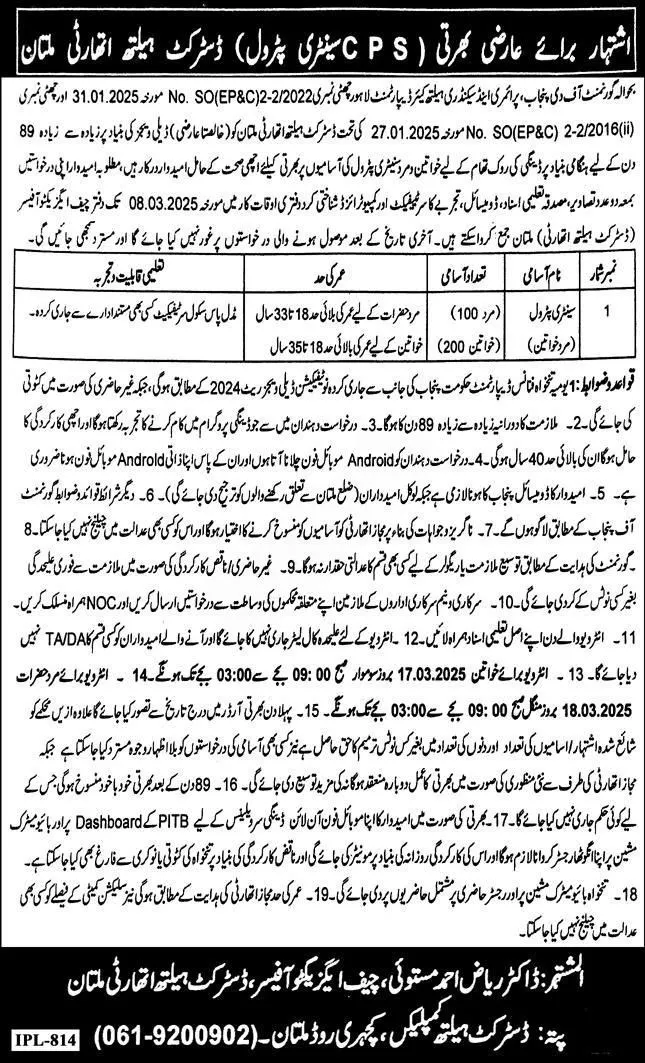 اشتہار برائے عارضی بھرتی (CPS سینٹری پٹرول) ڈسٹرکٹ ہیلتھ اتھارٹی ملتان
بحوالہ گورنمنٹ آف دی پنجاب، پرائمری اینڈ سیکنڈری ہیلتھ کیئر ڈیپارٹمنٹ لاہور چھٹی نمبری No. SO(EP&C)2-2/2022 مورخہ 31.01.2025 اور چھٹی نمبری
No. SO(EP&C) 2-2/2016(ii) مورخہ 27.01.2025 کی تحت ڈسٹرکٹ ہیلتھ اتھارٹی ملتان کو (خالصتا عارضی) ڈیلی ویجز کی بنیاد پر زیادہ سے زیادہ 89
دن کے لیے ہنگامی بنیاد پر ڈینگی کی روک تھام کے لیے خواتین و مرد سینٹری پٹرول کی آسامیوں پر بھرتی کیلئے اچھی صحت کے حامل امیدوار درکار ہیں، مطلوبہ امیدوار اپنی درخواستیں
بمعہ دو عدد تصاویر، مصدقہ تعلیمی اسناد، ڈومیسائل، تجربے کا سرٹیفکیٹ اور کمپیوٹرائزڈ شناختی کارڈ دفتری اوقات کار میں مورخہ 08.03.2025 تک دفتر چیف ایگزیکٹو آفیسر
(ڈسٹرکٹ ہیلتھ اتھارٹی) ملتان جمع کروا سکتے ہیں۔ آخری تاریخ کے بعد موصول ہونے والی درخواستوں پر غور نہیں کیا جائے گا اور مسترد سمجھی جائیں گی۔
نمبر شمار نام آسامی تعداد آسامی عمر کی حد تعلیمی قابلیت و تجربہ
1 سینٹری پٹرول (مرد 100) مرد حضرات کے لیے عمر کی بالائی حد 18 تا 33 سال مڈل پاس سکول سرٹیفکیٹ کسی بھی مستند ادارے سے جاری کردہ۔
(مرد خواتین) (خواتین 200) خواتین کے لیے عمر کی بالائی حد 18 تا 35 سال
قواعد و ضوابط: 1 یومیہ تنخواہ فنانس ڈیپارٹمنٹ حکومت پنجاب کی جانب سے جاری کردہ نوٹیفکیشن ڈیلی ویجز ریٹ 2024 کے مطابق ہوگی، جبکہ غیر حاضری کی صورت میں کٹوتی
کی جائے گی۔ 2۔ ملازمت کا دورانیہ زیادہ سے زیادہ 89 دن کا ہوگا۔ 3۔ درخواست دہندان میں سے جو ڈینگی پروگرام میں کام کرنے کا تجربہ رکھتا ہوگا اور اچھی کارکردگی کا
حامل ہوگا ان کی بالائی حد 40 سال ہوگی۔ 4۔ درخواست دہندان کو Android موبائل فون چلانا آتا ہو اور ان کے پاس اپنا ذاتی Android موبائل فون ہونا ضروری
ہے۔ 5۔ امیدوار کا ڈومیسائل پنجاب کا ہونا لازمی ہے جبکہ لوکل امیدواران (ضلع ملتان سے تعلق رکھنے والوں کو ترجیح دی جائے گی)۔ 6۔ دیگر شرائط قوائد و ضوابط گورنمنٹ
آف پنجاب کے مطابق لاگو ہوں گے۔ 7۔ ناگزیر وجوہات کی بناء پر مجاز اتھارٹی کو آسامیوں کو منسوخ کرنے کا اختیار ہوگا اور اس کو کسی بھی عدالت میں چیلنج نہیں کیا جا سکتا۔ 8
۔ گورنمنٹ کی ہدایت کے مطابق توسیع ملازمت یا ریگولر کے لیے کسی بھی قسم کا عدالتی حقدار نہ ہوگا۔ 9۔ غیر حاضری/ناقص کارکردگی کی صورت میں ملازمت سے فوری علیحدگی
بغیر کسی نوٹس کے کر دی جائے گی۔ 10۔ سرکاری و نیم سرکاری اداروں کے ملازمین اپنے متعلقہ محکموں کی وساطت سے درخواستیں ارسال کریں اور NOC ہمراہ منسلک کریں۔
11۔ انٹرویو والے دن اپنے اصل تعلیمی اسناد ہمراہ لائیں۔ 12۔ انٹرویو کے لئے علیحدہ کال لیٹر جاری نہیں کیا جائے گا اور آنے والے امیدواران کو کسی قسم کا TA/DA نہیں
دیا جائے گا۔ 13۔ انٹرویو برائے خواتین 17.03.2025 بروز سوموار صبح 09:00 بجے سے 03:00 بجے تک ہونگے۔ 14۔ انٹرویو برائے مرد حضرات
18.03.2025 بروز منگل صبح 09:00 بجے سے 03:00 بجے تک ہونگے۔ 15۔ پہلا دن بھرتی آرڈر میں درج تاریخ سے تصور کیا جائے گا علاوہ ازیں محکمے کو
شائع شدہ اشتہار/اسامیوں کی تعداد اور دنوں کی تعداد میں بغیر کسی نوٹس ترمیم کا حق حاصل ہے نیز کسی بھی آسامی کی درخواستوں کو بلا اظہار وجوہ مسترد کیا جا سکتا ہے جبکہ
مجاز اتھارٹی کی طرف سے نئی منظوری کی صورت میں بھرتی کا عمل دوبارہ منعقد ہوگا نہ کی مزید توسیع دی جائے گی۔ 16۔ 89 دن کے بعد بھرتی خود بخود منسوخ ہوگی جس کے
لیے کوئی حکم جاری نہیں کیا جائے گا۔ 17۔ بھرتی کی صورت میں امیدوار کا اپنا موبائل فون آن لائن ڈینگی سرویلنس کے لیے PITB کے Dashboard پر اور بائیو میٹرک
مشین پر اپنا انگوٹھا رجسٹر کروانا لازم ہوگا اور اس کی کارکردگی روزانہ کی بنیاد پر مونیٹر کی جائے گی اور ناقص کارکردگی کی بنیاد پر تنخواہ کی کٹوتی یا نوکری سے فارغ بھی کیا جا سکتا ہے۔
18۔ تنخواہ بائیو میٹرک مشین پر اور رجسٹر حاضری پر مشتمل حاضریوں پر دی جائے گی۔ 19۔ عمر کی حد مجاز اتھارٹی کی ہدایت کے مطابق ہوگی نیز سلیکشن کمیٹی کے فیصلے کو کسی بھی
عدالت میں چیلنج نہیں کیا جا سکتا۔
المشتہر: ڈاکٹر ریاض احمد مستوئی، چیف ایگزیکٹو آفیسر، ڈسٹرکٹ ہیلتھ اتھارٹی ملتان
پتہ: ڈسٹرکٹ ہیلتھ کمپلیکس، کچہری روڈ ملتان۔ (061-9200902)
IPL-814